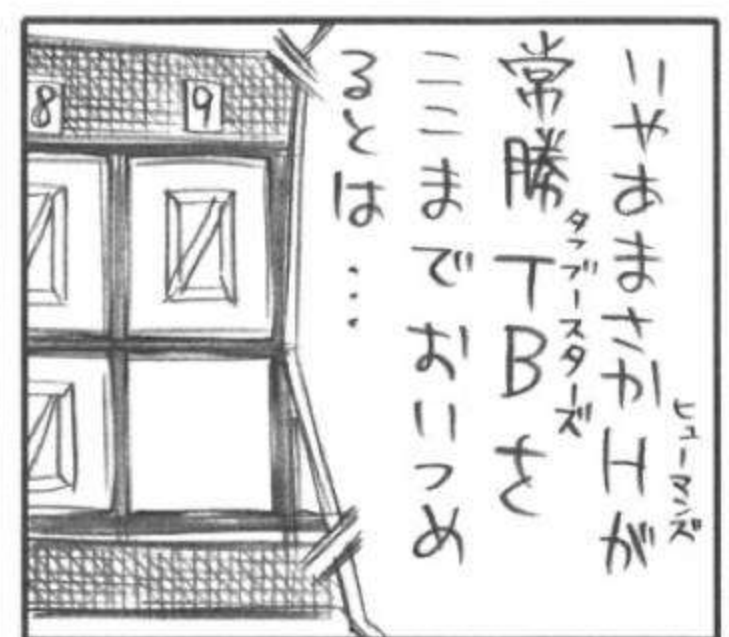 いやあまさかHが
ヒューマンズ
常勝TBを
タフブースターズ
ここまでおいつめ
るとは…
8 9